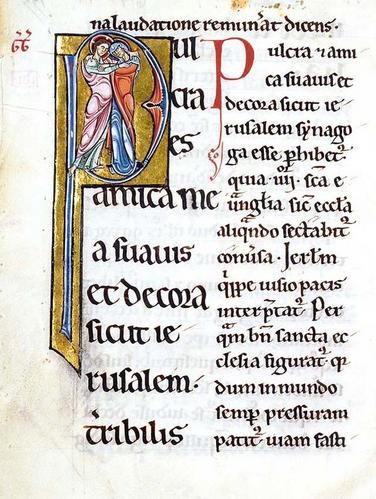 na laudatione remun̅at dicens·
Pul
cra
es
amica me
a suauis
et decora
sicut ie
rusalem·
t̅ribilis
Pulcra ⁊ ami
ca suauis et
decora sicut ie
rusalem synago
ga esse ꝑhibet᷑
quia iiii· sc̅a e
uu̅glia sic̅ eccl̅a
aliqn̅do sectabit᷑
conu̅sa· Jerl̅m
q̅ppe uisio pacis
interp̅tat᷑ Per
q̅m bn̅ sancta ec
clesia figurat᷑ q̅
dum in mundo
semꝑ pressuram
patit᷑ uiam fasti